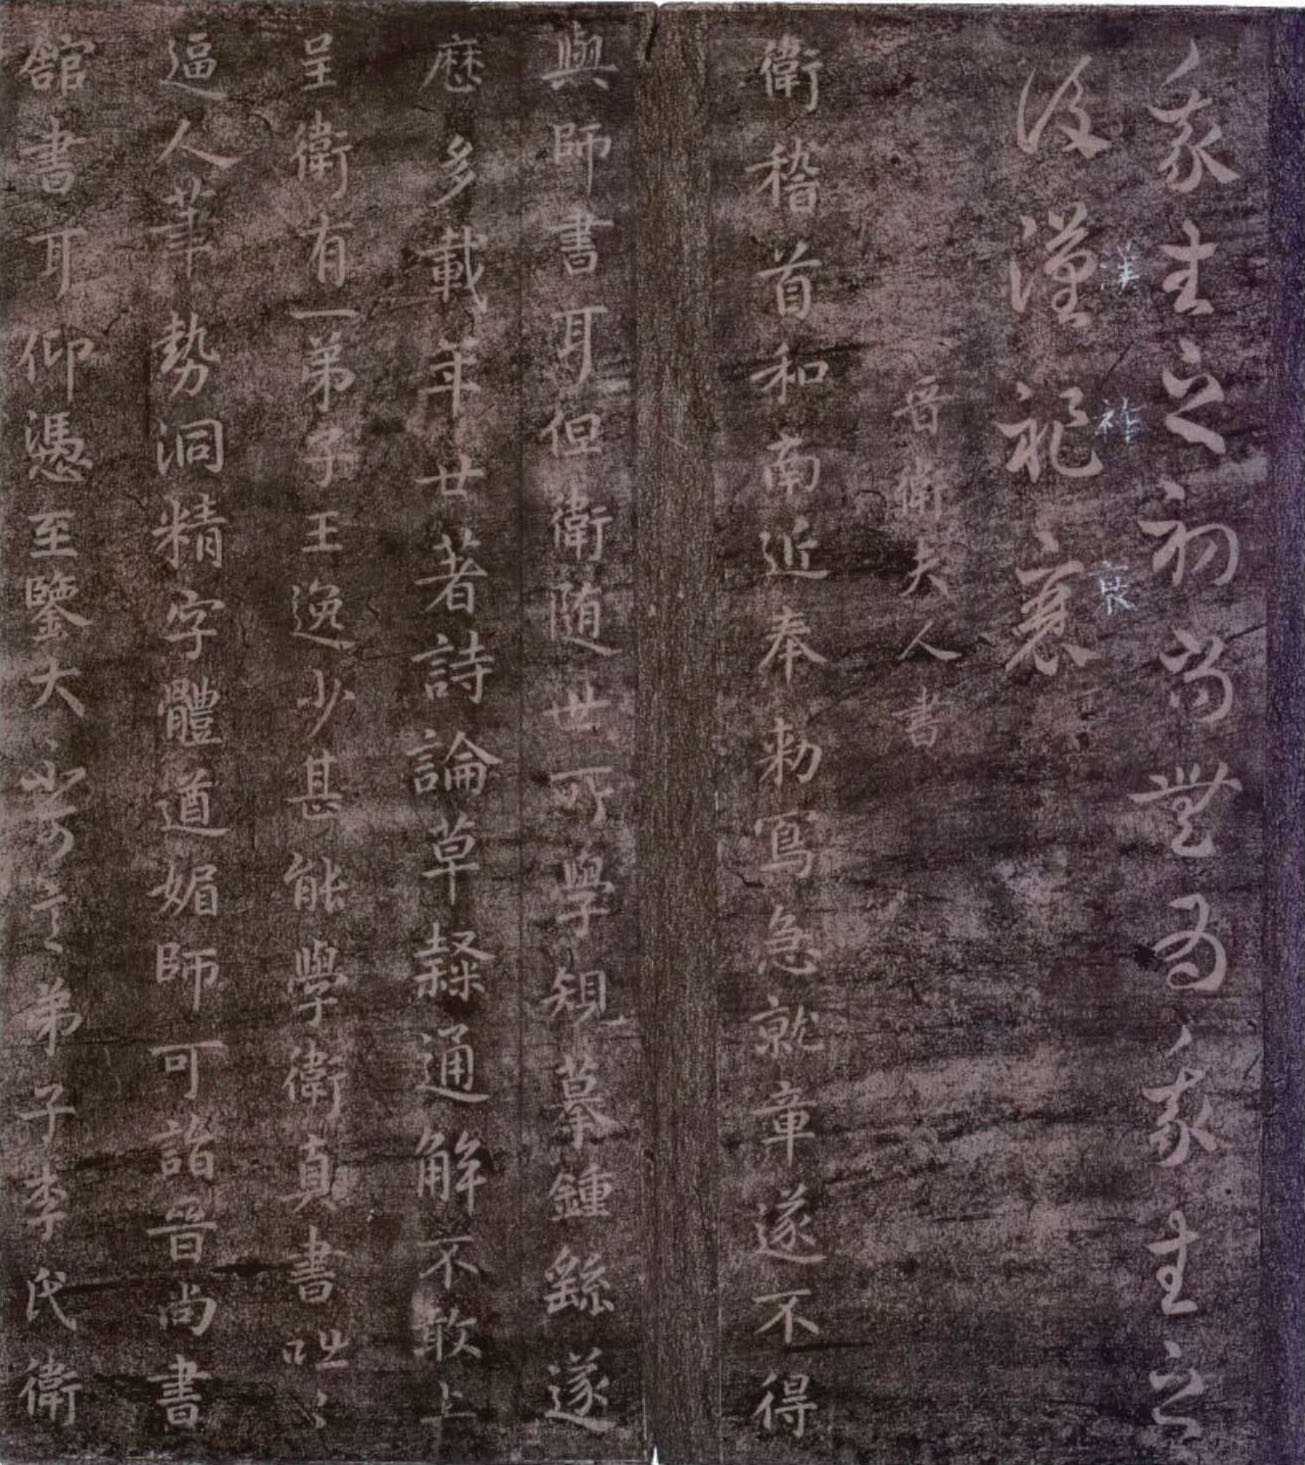 我生之初尚無為我生之
後漢祚衰
漢祚衰
晉衛夫人書
衛稽首和南近奉勑寫急就章遂不得
與師書耳但衛隨世所學規摹鍾繇遂
歷多載年廿著詩論草隸通解不敢上
呈衛有一弟子王逸少甚能學衛真書咄〻
逼人筆勢洞精字體遒媚師可詣晉尚書
館書耳仰憑至鑒大不可言弟子李氏衛